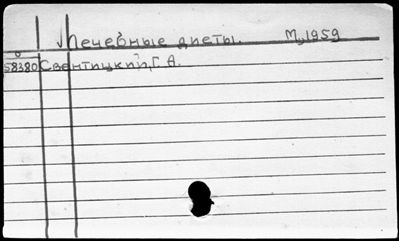 Лечебные диеты. М, 1959
58380 Свентицкий, Г. А.